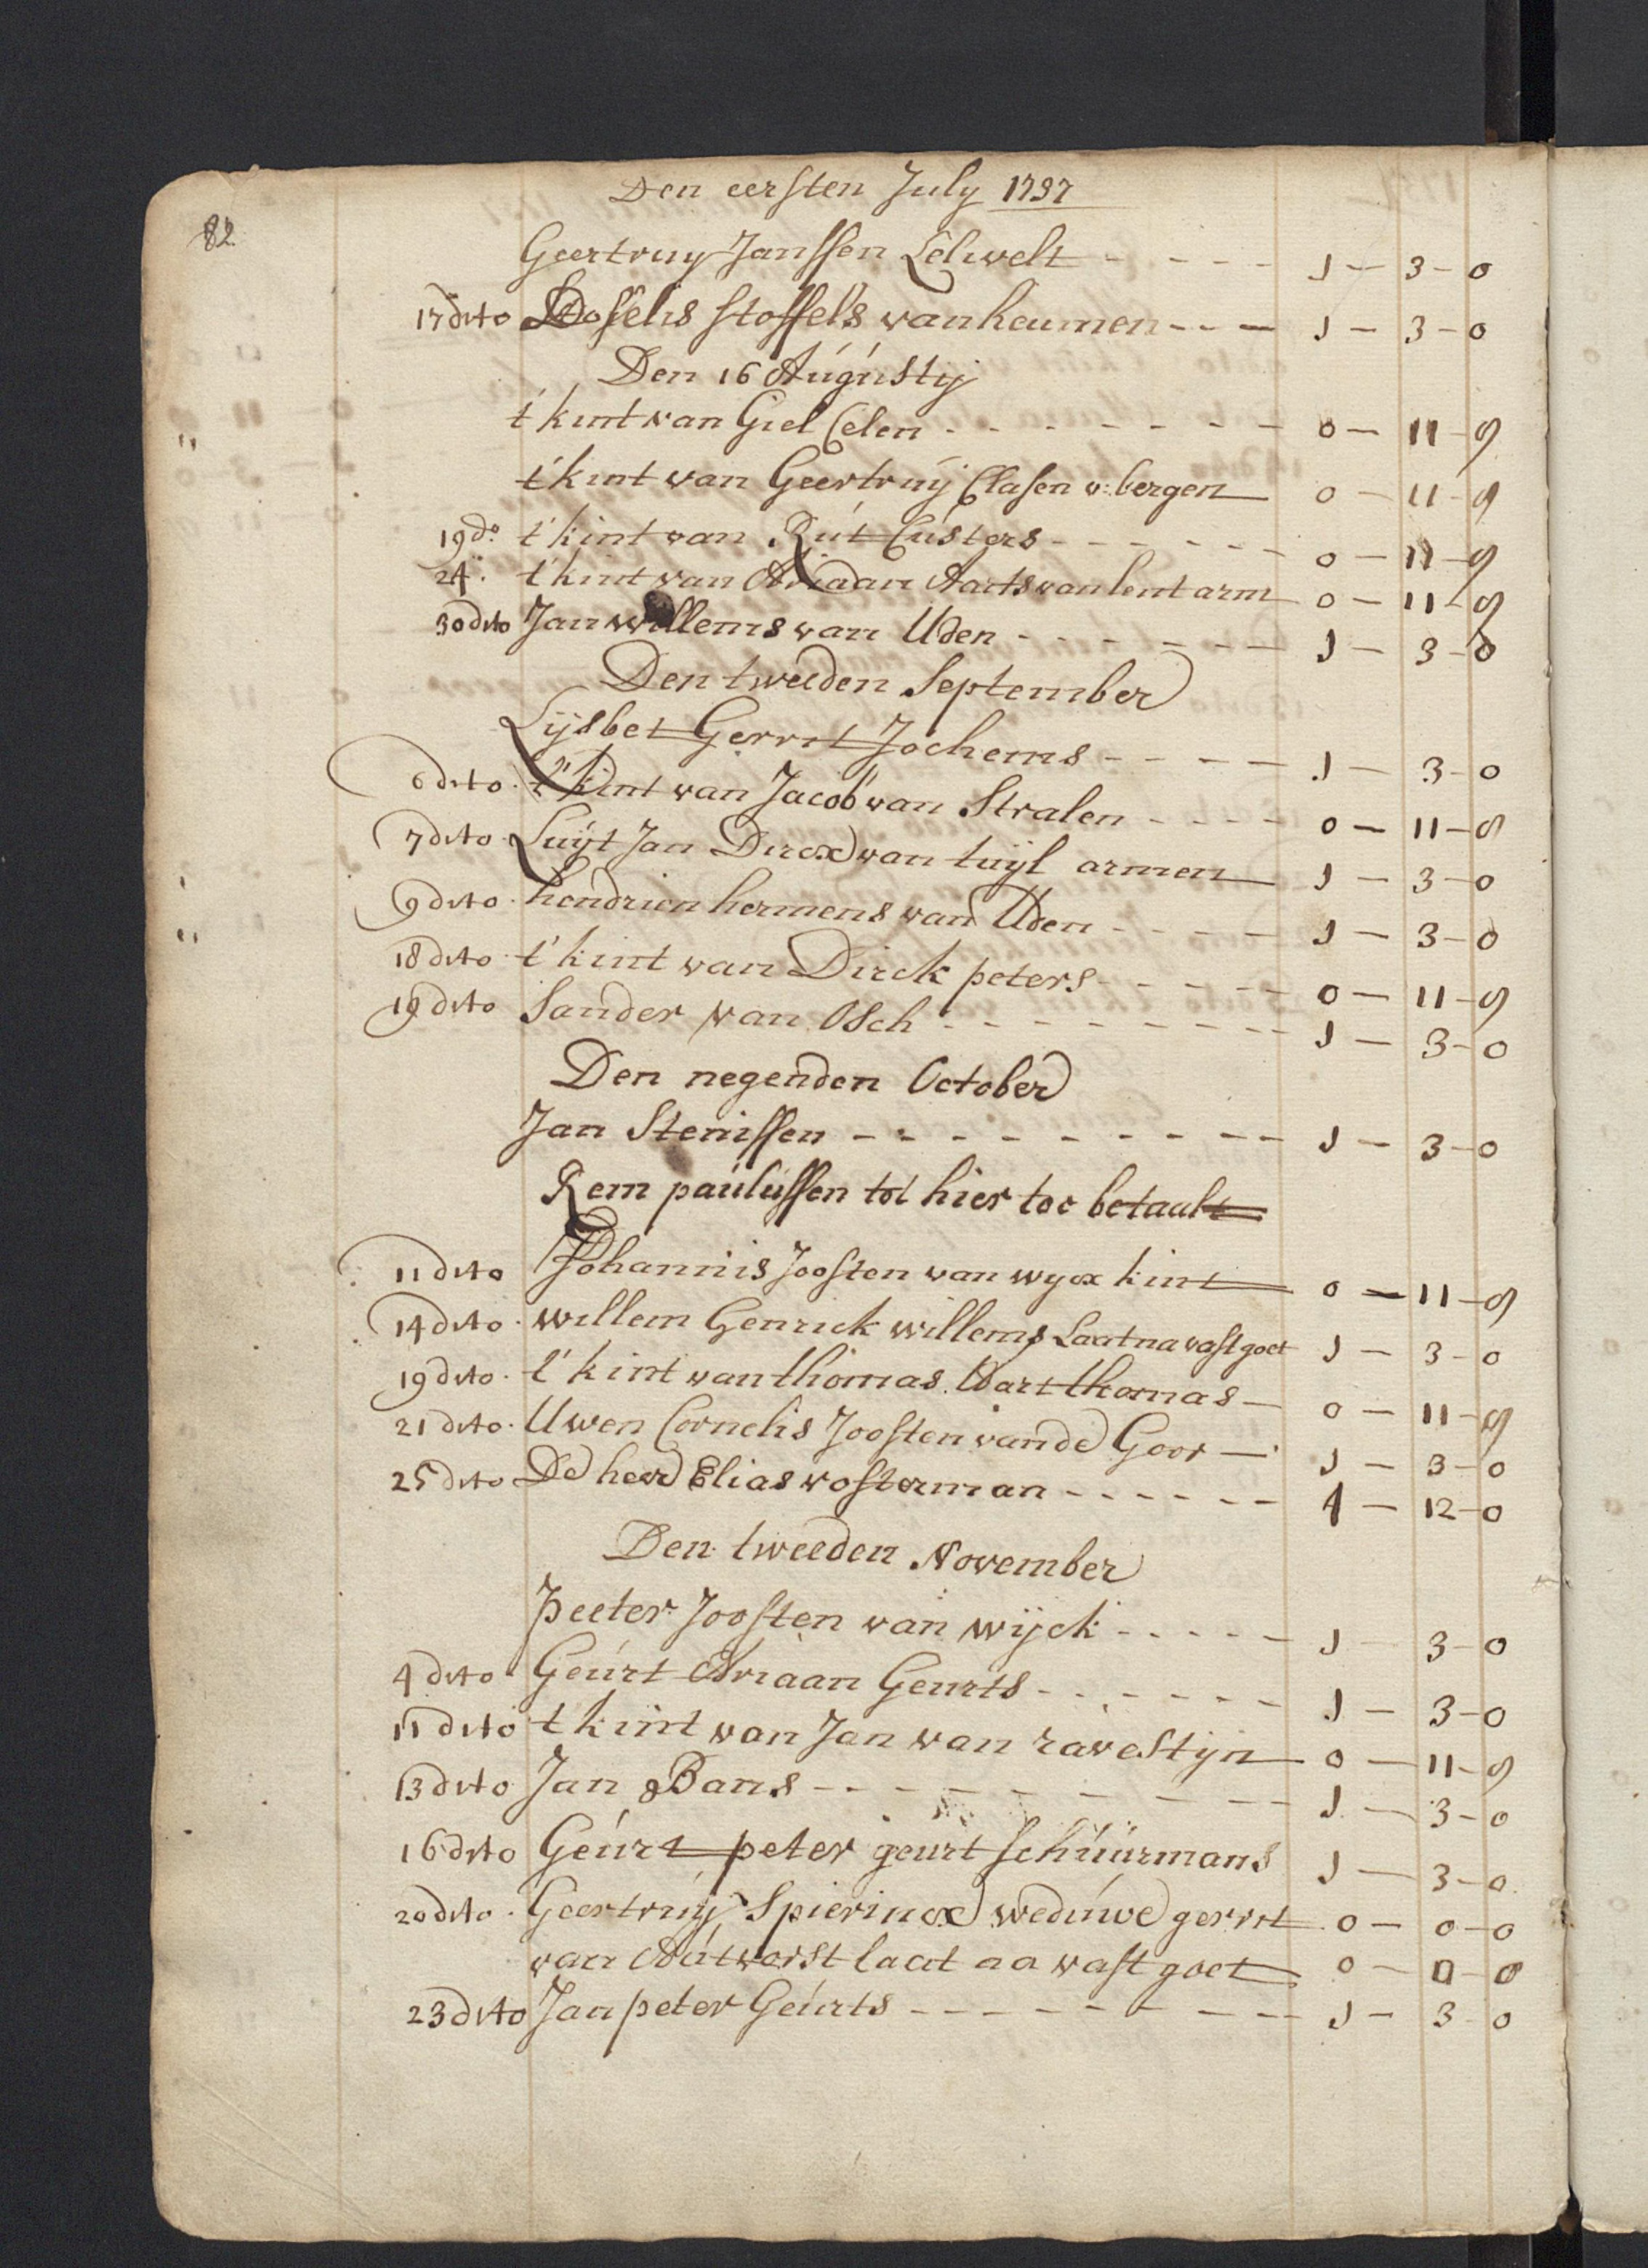 Den eersten July 1737
82
Geertruy Janssen Lelivelt - - - - - 1 - 3 - 0
17 dito Roselis stoffels van heumen - - - 1 - 3 - 0
Den 16 Augustij
t'kint van Giel Celen - - - - - - - 0 - 11 - 9
t'kint van Geertruij Clasen v: bergen 0 - 11 - 9
19 do t'kint van Rut Custers - - - - - - 0 - 11 - 9
24 " t'kint van Ariaan Aarts van lent arm 0 - 11 - 9
30 dito Jan willems van Uden - - - - - - 1 - 3 - 0
Den tweeden September
Lijsbet Gerrit Jochems - - - - - 1 - 3 - 0
6 dito t'kint van Jacob van Stralen - - - - 0 - 11 - 9
7 dito Luijt Jan Dircx van tuijl armen 1 - 3 - 0
9 dito hendrien hermens van Uden - - - - 1 - 3 - 0
18 dito t'kint van Dirck peters - - - - - 0 - 11 - 9
19 dito Sander van Osch - - - - - - - - - 1 - 3 - 0
Den negenden October
Jan Stenissen - - - - - - - - - 1 - 3 - 0
Rem paulussen tot hier toe betaalt
11 dito Johannis Joosten van wyck kint 0 - 11 - 9
14 dito willem Genrick willems Laat na vast goet 1 - 3 - 0
19 dito t'kint van thomas Bart thomas - 0 - 11 - 9
21 dito Uwen Cornelis Joosten vande Goor - 1 - 3 - 0
25 dito De heer Elias vosterman - - - - - - 4 - 12 - 0
Den tweeden November
Peeter Joosten van wijck - - - - - 1 - 3 - 0
4 dito Geurt Ariaan Geurts - - - - - - 1 - 3 - 0
11 dito t kint van Jan van ravestijn 0 - 11 - 9
13 dito Jan Bans - - - - - - - - 1 - 3 - 0
16 dito Geurt peter geurt schuurmans 1 - 3 - 0
20 dito Geertruij Spierincx weduwe gerrit 0 - 0 - 0
van laat na vast goet 0 - 0 - 0
23 dito Jan peter Geurts - - - - - - - - - 1 - 3 - 0